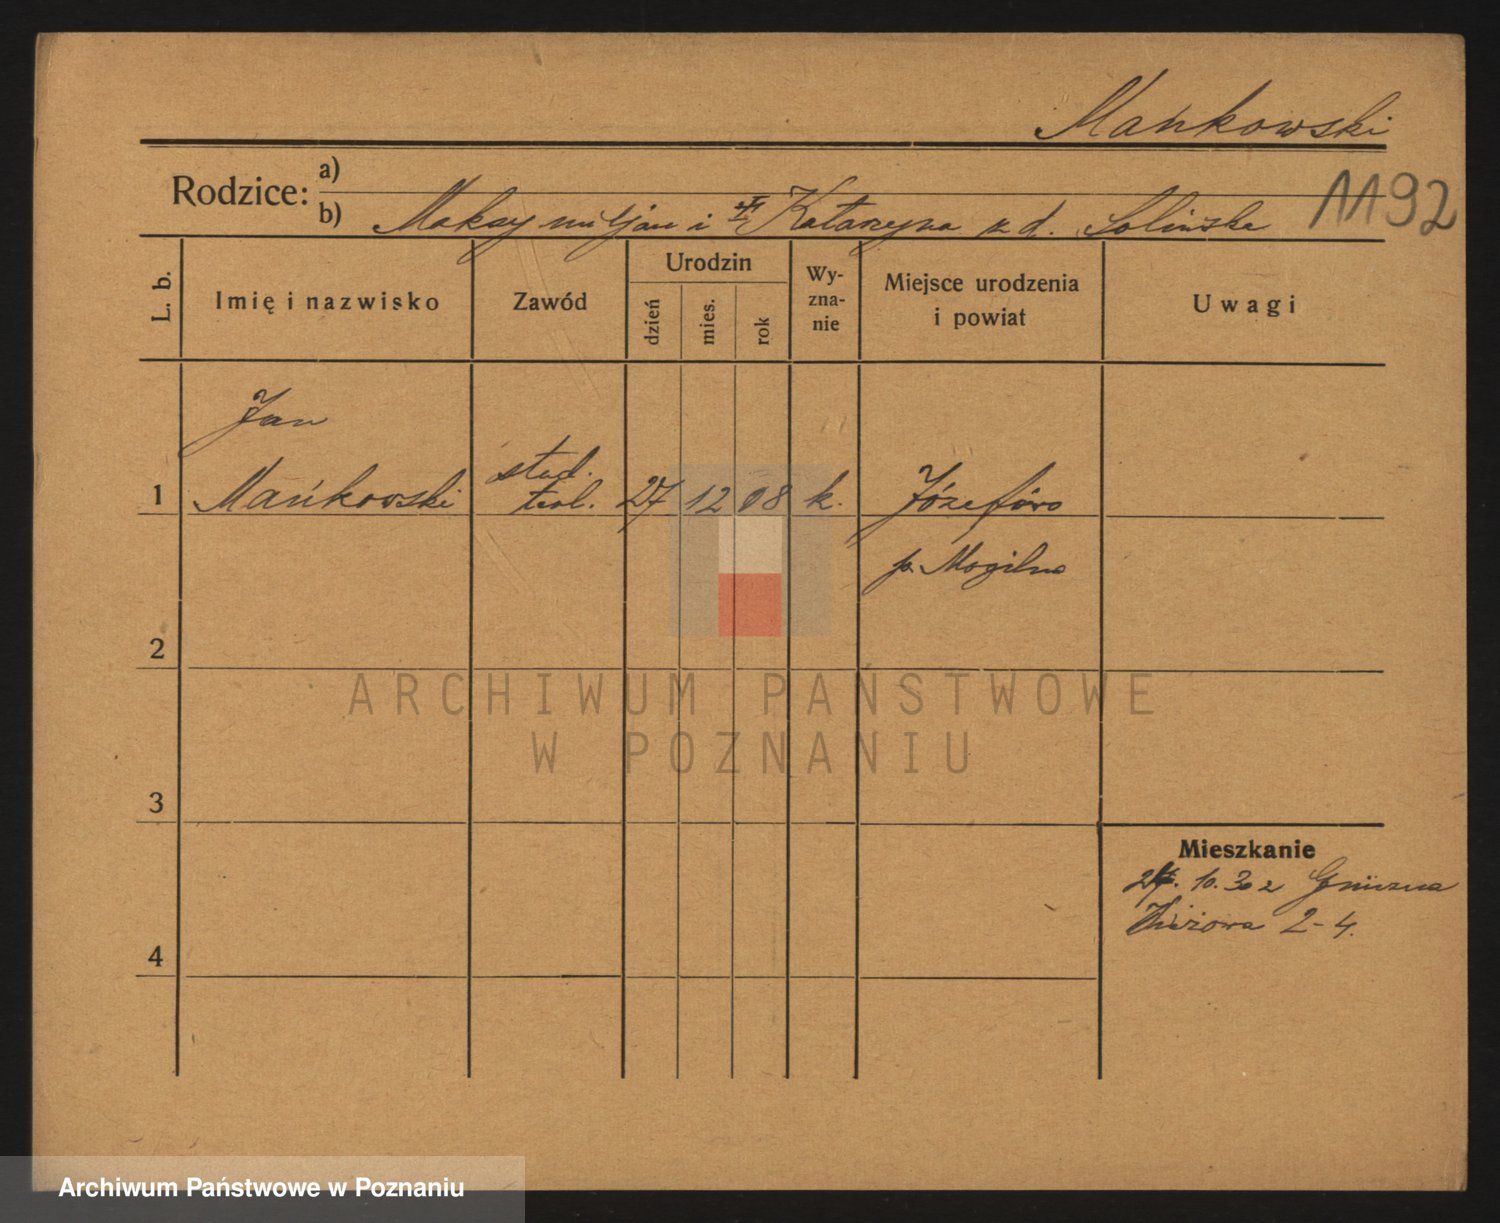 Mańkowski
1192
Rodzice:
a)
b) Maksymiljan i Katarzyna z d. Solińska
L. b.
Imię i nazwisko
Zawód
Urodzin
dzień
mies.
rok
Wy-
zna-
nie
Miejsce urodzenia
i powiat
Uwagi
Jan
1 Mańkowski
stud.
teol.
27 12 08 k. Józefowo
p. Mogilno
2
ARCHIWUM PAŃSTWOWE
W POZNANIU
3
Mieszkanie
10. 30 z Gniezna
2-4.
4
Archiwum Państwowe w Poznaniu